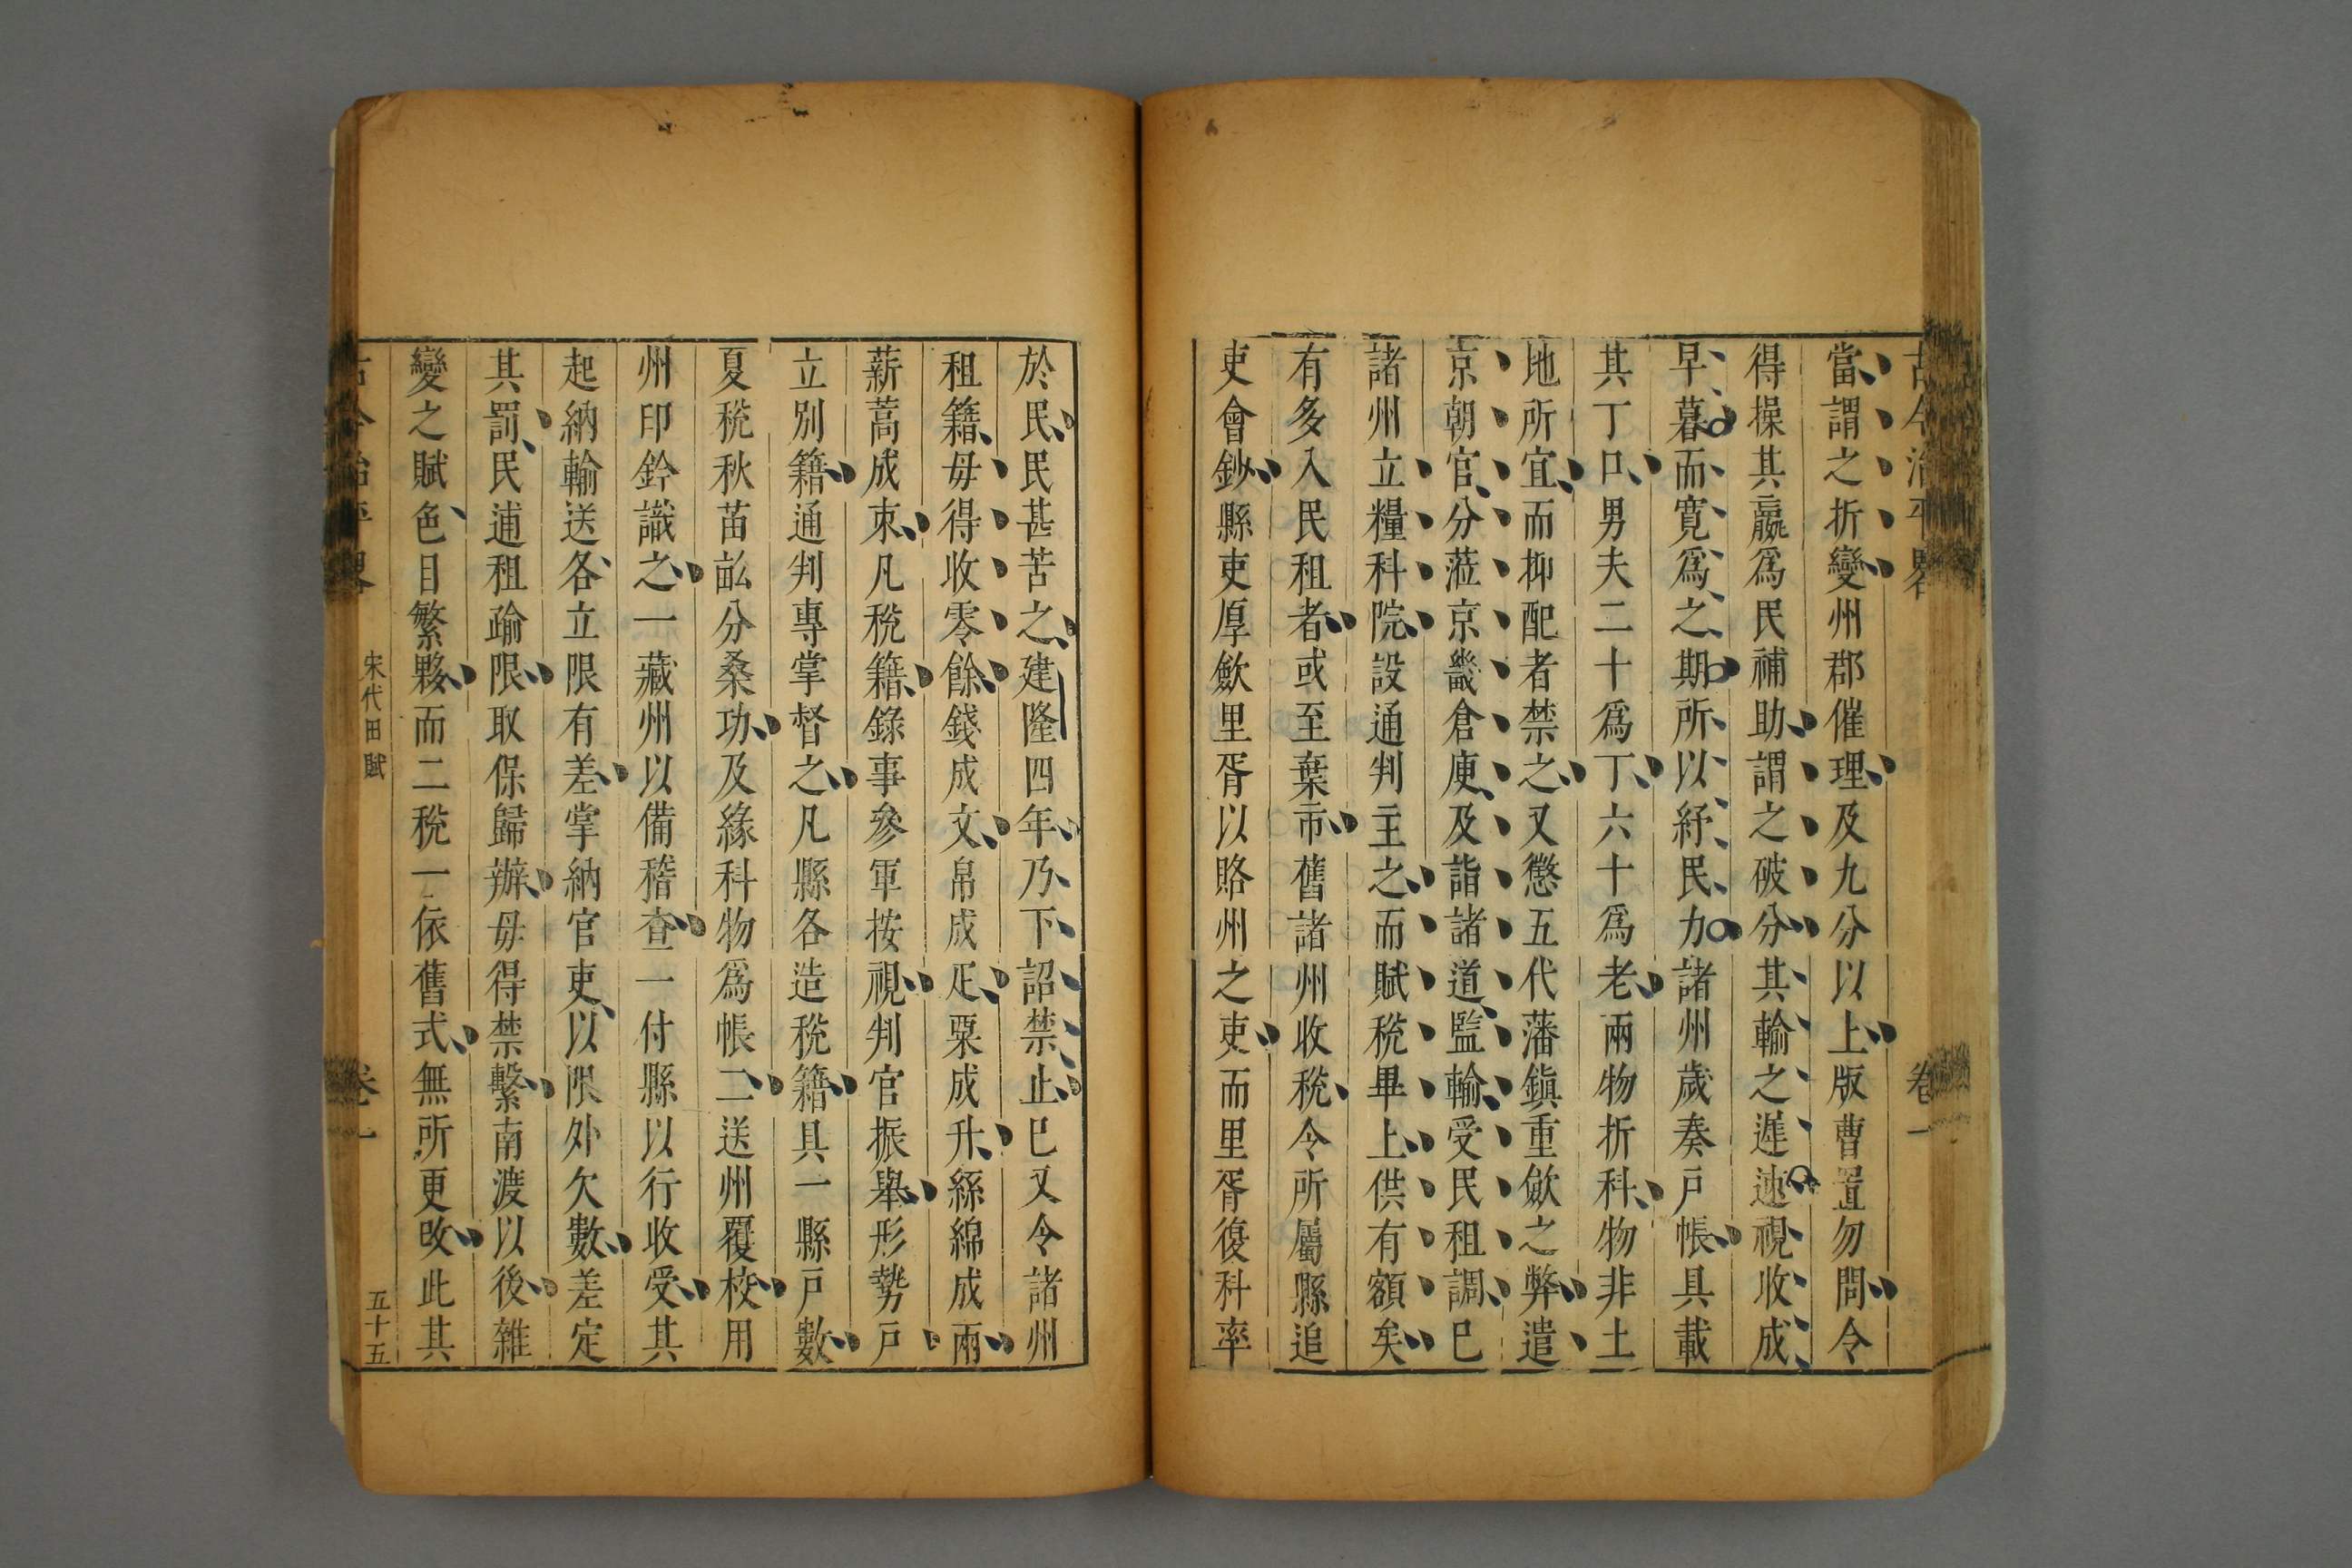 古今治平畧 卷一
當謂之折變州郡催理及九分以上版曹置勿問令
得操其羸爲民補助謂之破分其輸之遲速視收成
早暮而寬爲之期所以紓民力諸州歲奏戶帳具載
其丁口男夫二十爲丁六十爲老兩物折科物非土
地所宜而抑配者禁之又懲五代藩鎭重斂之弊遣
京朝官分蒞京畿倉庾及詣諸道監輸受民租調已
諸州立糧科院設通判主之而賦稅畢上供有額矣
有多入民租者或至棄市舊諸州收稅令所屬縣追
吏會鈔縣吏厚斂里胥以賂州之吏而里胥復科率
於民民甚苦之建隆四年乃下詔禁止已又令諸州
租籍毋得收零餘錢成文帛成疋粟成升絲綿成兩
薪蒿成束凡稅籍錄事參軍按視判官振舉形勢戶
立別籍通判專掌督之凡縣各造稅籍具一縣戶數
夏稅秋苗畝分桑功及緣科物爲帳二送州覆校用
州印鈐識之一藏州以備稽查一付縣以行收受其
起納輸送各立限有差掌納官吏以限外欠數差定
其罰民逋租踰限取保歸辦毋得禁繫南渡以後雜
變之賦色目繁夥而二稅一依舊式無所更改此其
古今治平畧 宋代田賦 卷一 五十五